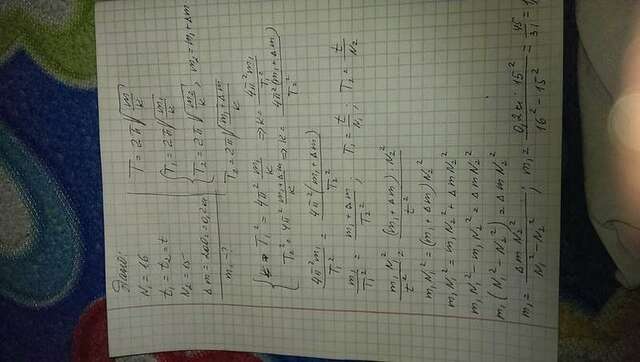 Дано:
N₁ = 16
t₁ = t₂ = t
N₂ = 15
Δm = 200г = 0,2кг
m₁ - ?
T = 2π√(m/k)
{T₁ = 2π√(m₁/k)
{T₂ = 2π√(m₂/k), m₂ = m₁ + Δm
T₂ = 2π√((m₁ + Δm)/k)
{T₁² = 4π² m₁/k => k = 4π²m₁/T₁²
{T₂² = 4π² (m₁ + Δm)/k => k = 4π²(m₁ + Δm)/T₂²
4π²m₁/T₁² = 4π²(m₁ + Δm)/T₂²
m₁/T₁² = (m₁ + Δm)/T₂²; T₁ = t/N₁; T₂ = t/N₂
m₁N₁²/t² = (m₁ + Δm) N₂²/t²
m₁N₁² = (m₁ + Δm) N₂²
m₁N₁² = m₁N₂² + Δm N₂²
m₁N₁² - m₁N₂² = Δm N₂²
m₁(N₁² - N₂²) = Δm N₂²
m₁ = Δm N₂²/(N₁² - N₂²); m₁ = 0,2кг · 15²/(16² - 15²) = 45/31 =